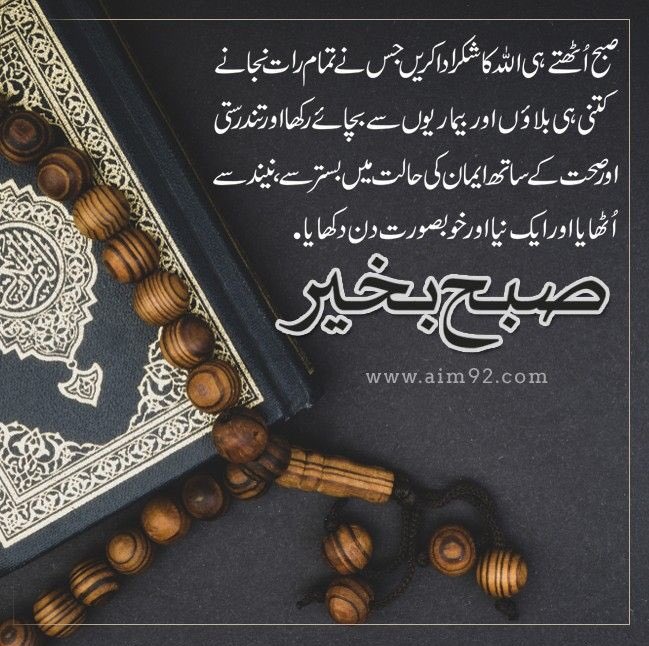 صبح اُٹھتے ہی اللہ کا شکر ادا کریں جس نے تمام رات نجانے
کتنی ہی بلاؤں اور بیماریوں سے بچائے رکھا اور تندرستی
اور صحت کے ساتھ ایمان کی حالت میں بستر سے، نیند سے
اُٹھایا اور ایک نیا اور خوبصورت دن دکھایا۔
صبح بخیر
www.aim92.com